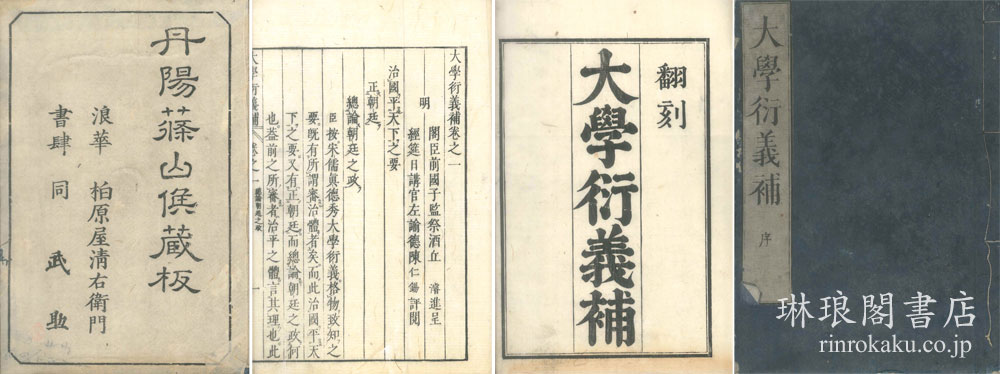 大學衍義補
序
翻刻
大學衍義補
大學衍義補卷之一
明
閣臣前國子監祭酒丘濬進呈
經筵日講官左諭德陳仁錫評閱
治國平天下之要
正朝廷
總論朝廷之政
臣按宋儒眞德秀大學衍義格物致知之
要既有所謂審治體者矣而此治國平天
下之要又有正朝廷而總論朝廷之政何
也葢前之所審者治平之體言其理也此
大學衍義補
卷之一
總論朝廷之政
一
丹陽篠山侯蔵板
浪華 柏原屋清右衛門
書肆 同 武
琳琅閣書店
rinrokaku.co.jp